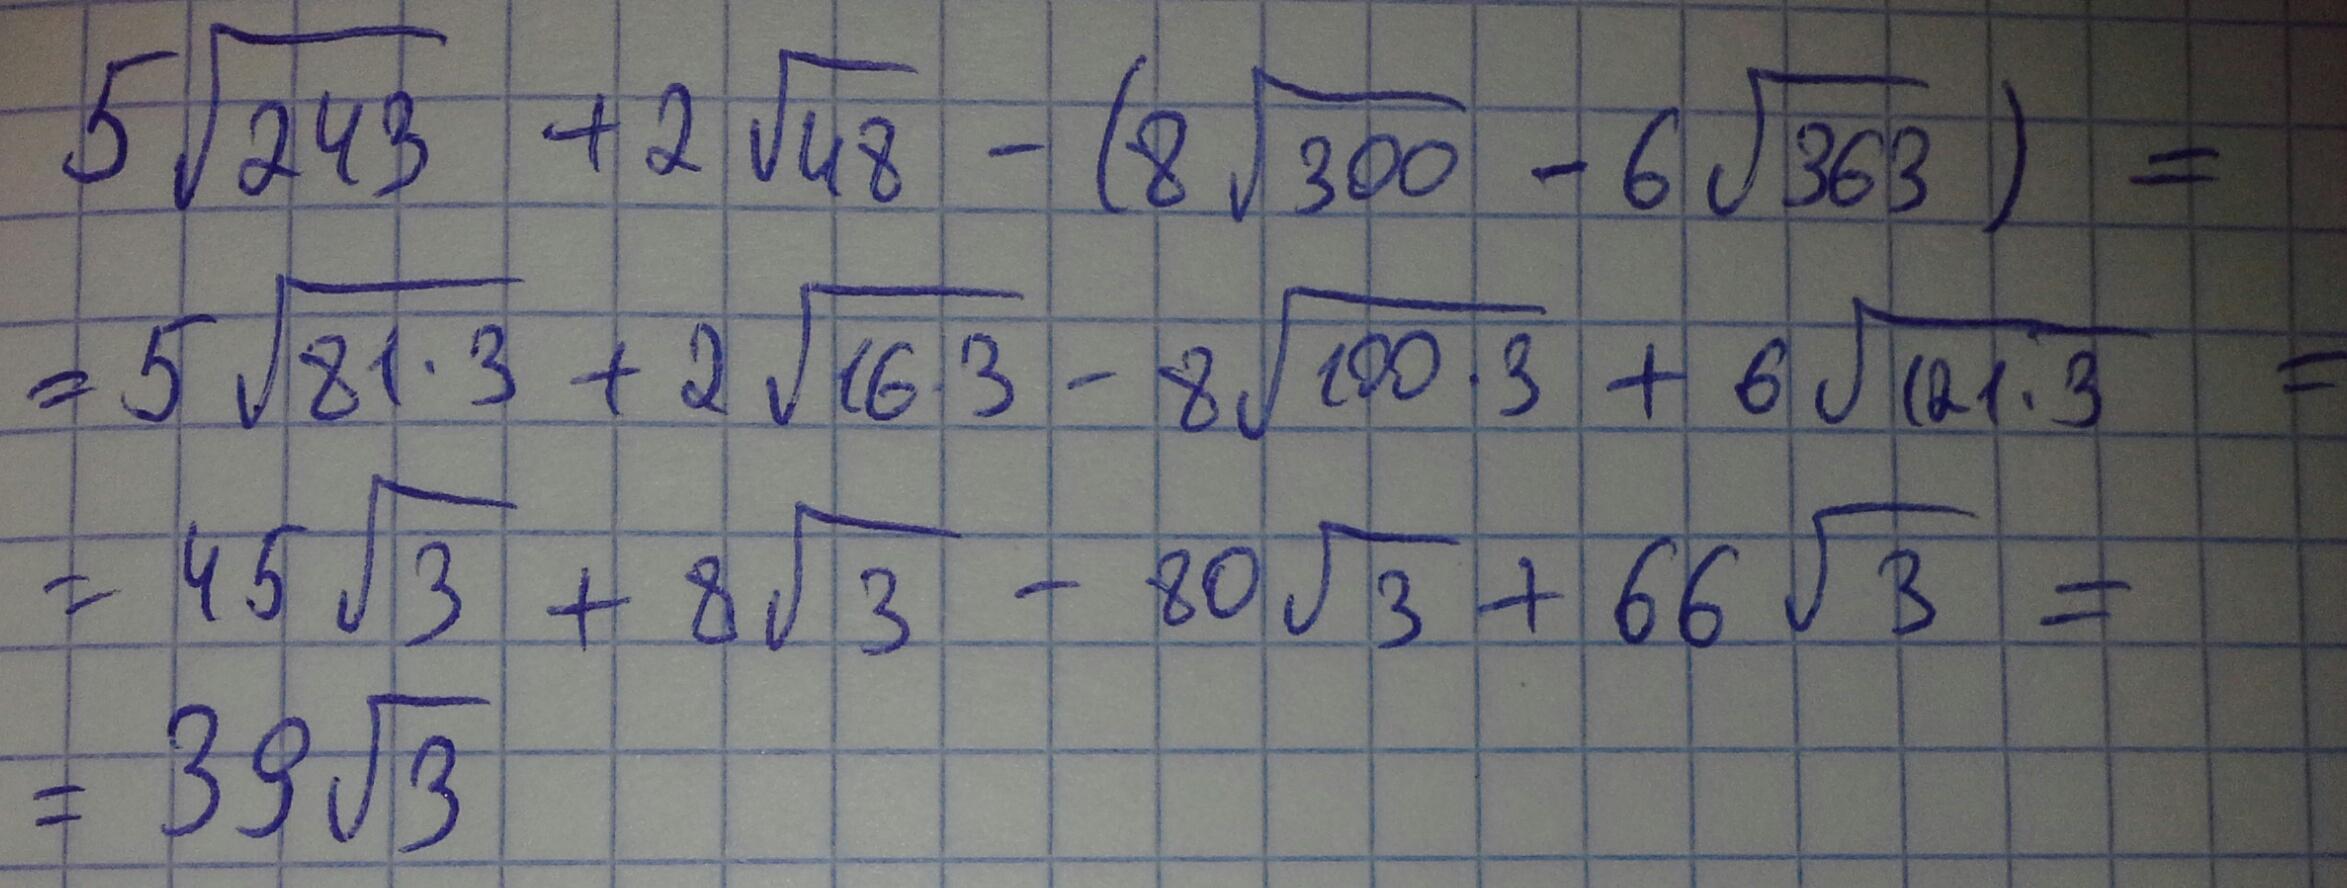 5√243 + 2√48 - (8√300 - 6√363) =
= 5√81·3 + 2√16·3 - 8√100·3 + 6√121·3 =
= 45√3 + 8√3 - 80√3 + 66√3 =
= 39√3